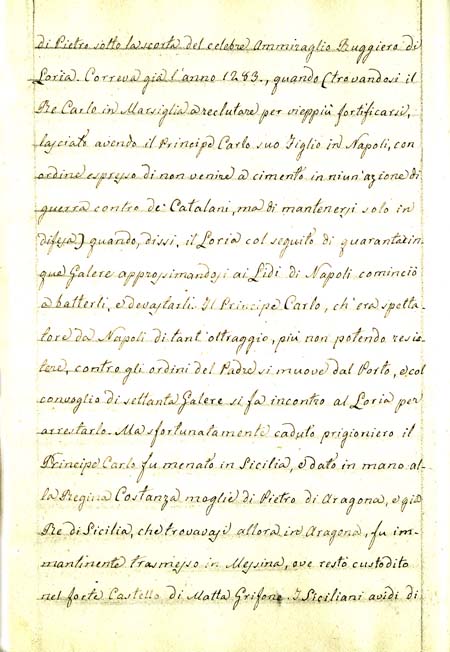 di Pietro sotto la scorta del celebre Ammiraglio Ruggiero di
Loria. Correva già l'anno 1283., quando (trovandosi il
Re Carlo in Marsiglia a reclutare per vieppiù fortificarsi,
lasciato avendo il Principe Carlo suo Figlio in Napoli, con
ordine espresso di non venire a cimento in niun'azione di
guerra contro de' Catalani, ma di mantenersi solo in
difesa) quando, dissi, il Loria col seguito di quarantacin-
que Galere approssimandosi ai Lidi di Napoli cominciò
a batterli, e devastarli. Il Principe Carlo, ch'era spetta-
tore da Napoli di tant'oltraggio, più non potendo resis-
tere, contro gli ordini del Padre si muove dal Porto, e col
convoglio di settanta Galere si fa incontro al Loria per
arrestarlo. Ma sfortunatamente caduto prigioniero il
Principe Carlo fu menato in Sicilia, e dato in mano al-
la Regina Costanza moglie di Pietro di Aragona, e già
Re di Sicilia, che trovavasi allora in Aragona, fu im-
mantinente trasmesso in Messina, ove restò custodito
nel forte Castello di Matta Grifone. I Siciliani avidi di